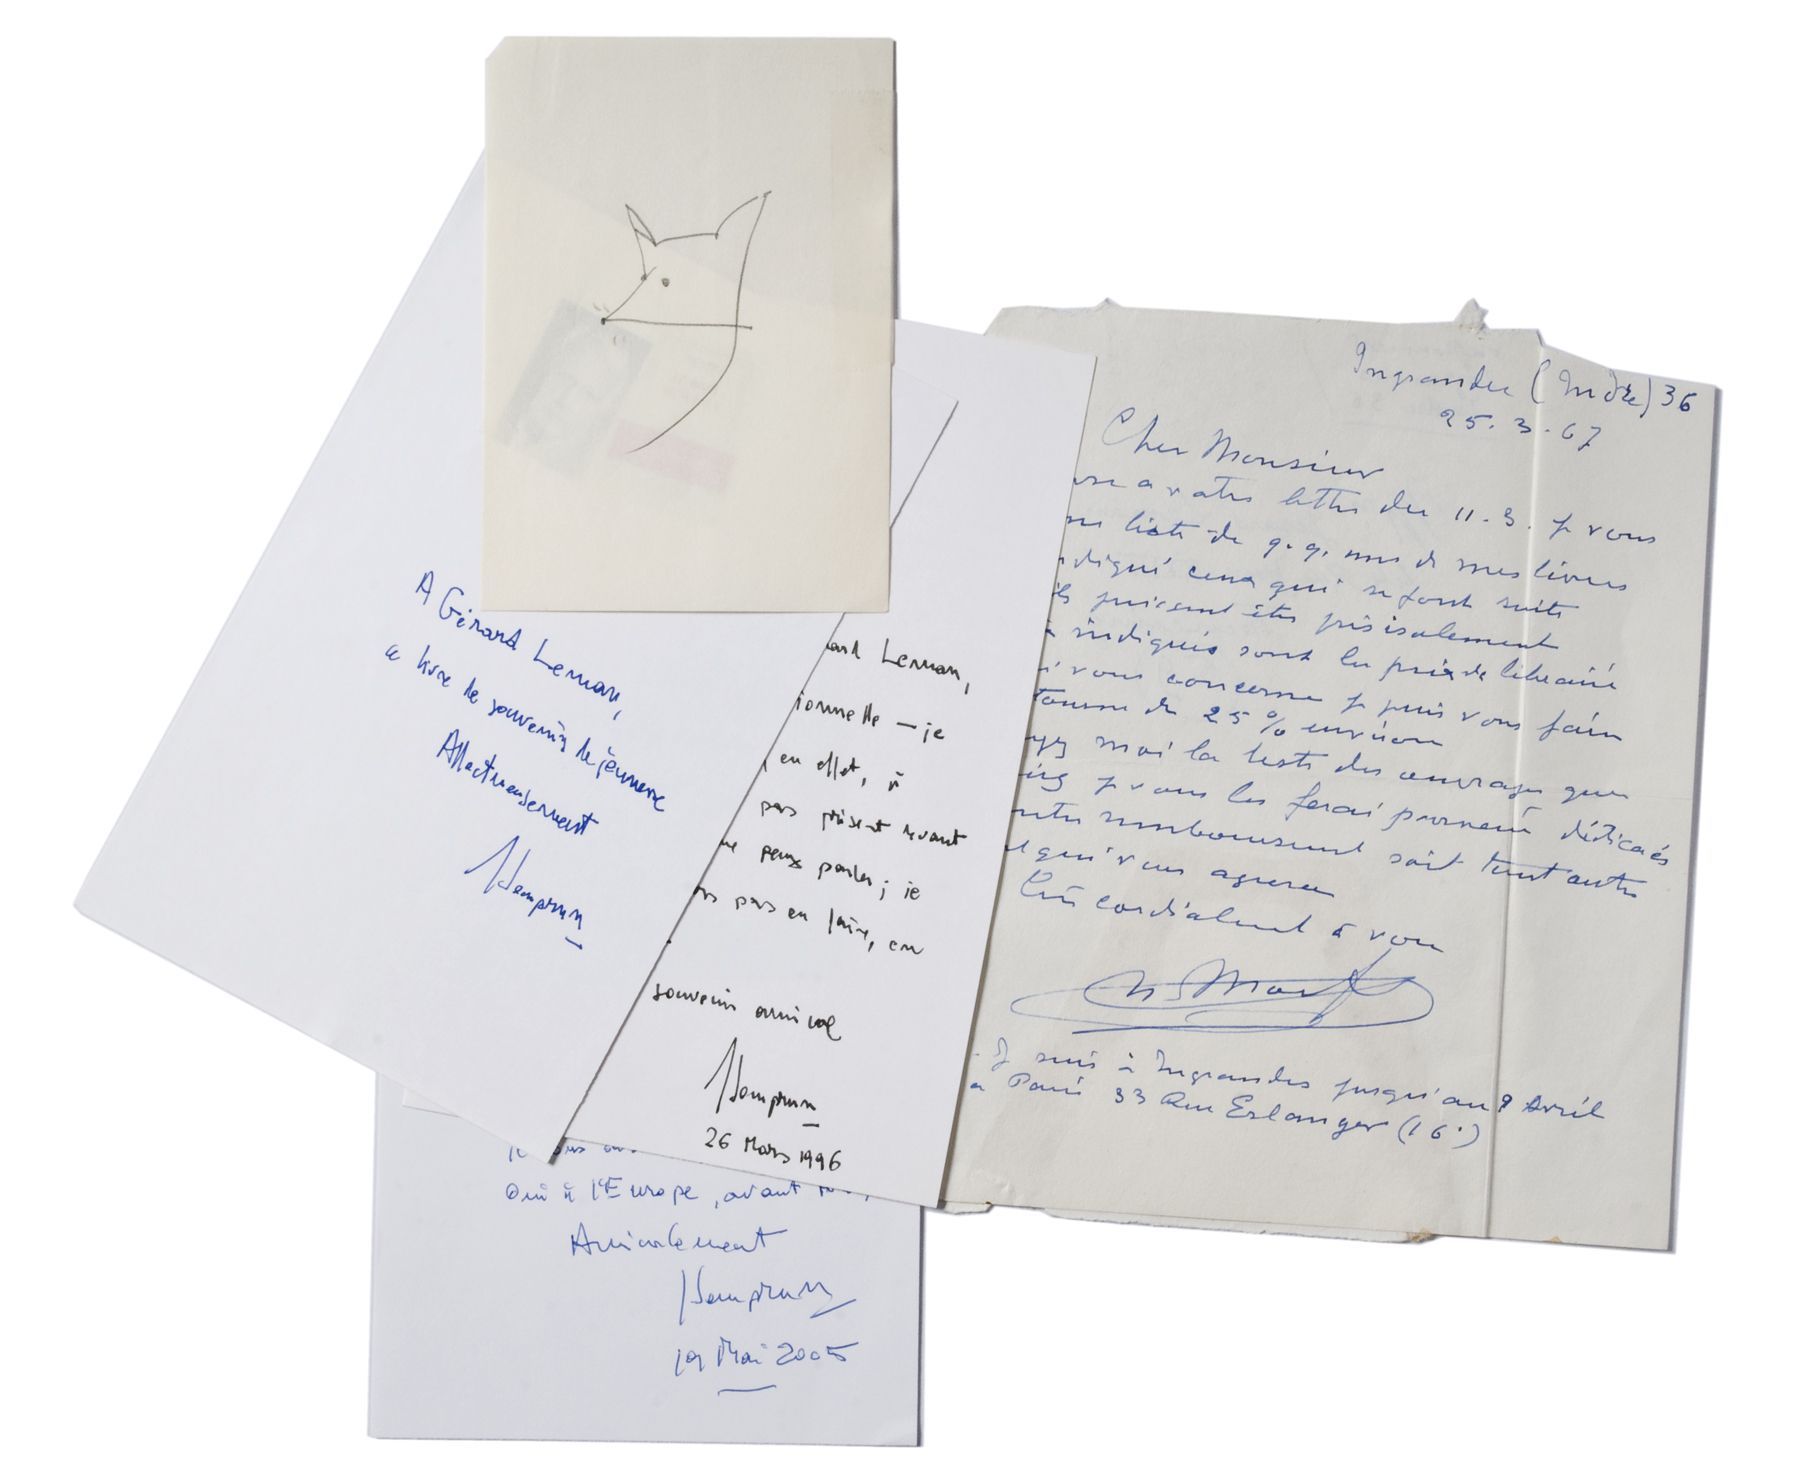 A Gérard Leman,
ce livre de souvenirs de jeunesse
Affectueusement
JSemprun
Leman,
je
en effet, à
pas présent
peux parler; je
pas en faire, en
souvenir amical
JSemprun
26 Mars 1996
Oui à l'Europe, avant
Amicalement
JSemprun
Mai 2005
Ingrandes (Indre) 36
25.3.67
Cher Monsieur
a votre lettre du 11.3. je vous
liste de q.q. uns de mes livres
indiqué ceux qui se font suite
puissent être
indiqués sont les prix de librairie
vous concerne je puis vous faire
de 25% environ
moi la liste des ouvrages que
je vous les ferai parvenir dédicacés
remboursement soit tout autre
qui vous agréera
Très cordialement à vous
Je suis à Ingrandes jusqu'au 9 Avril
à Paris 33 Rue Erlanger (16.)